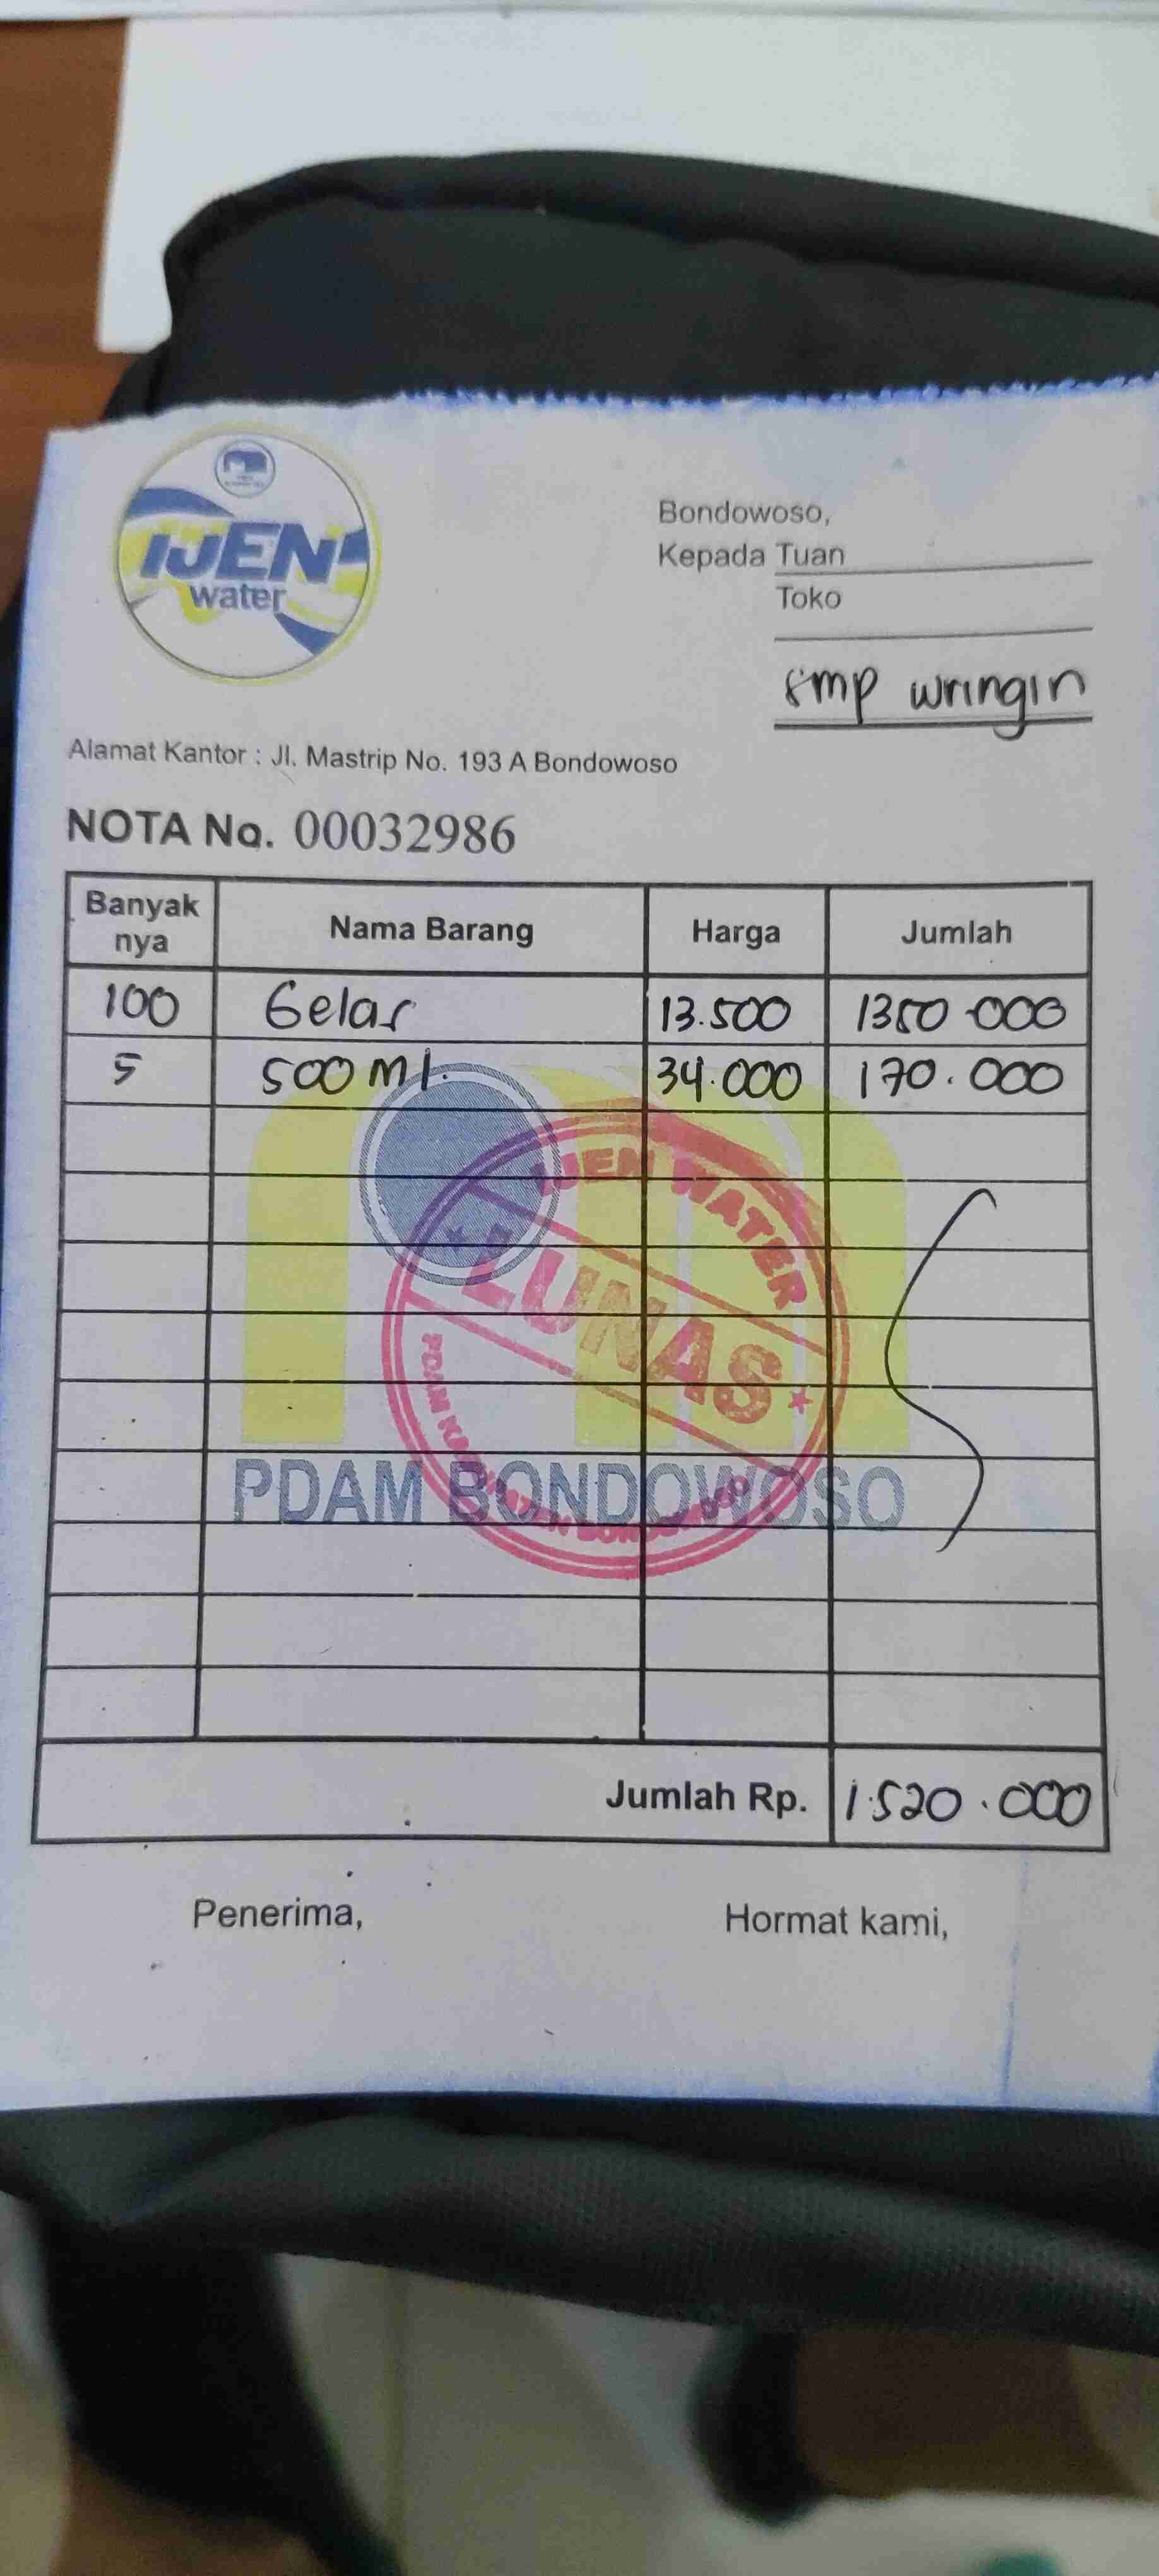 IJEN
water
Bondowoso,
Kepada Tuan
Toko
smp wringin
Alamat Kantor : Jl. Mastrip No. 193 A Bondowoso
NOTA No. 00032986
Banyak nya Nama Barang Harga Jumlah
100 Gelas 13.500 1350.000
5 500 ml. 34.000 170.000
IJEN WATER
LUNAS
PDAM KABUPATEN BONDOWOSO
PDAM BONDOWOSO
Jumlah Rp. 1.520.000
Penerima, Hormat kami,